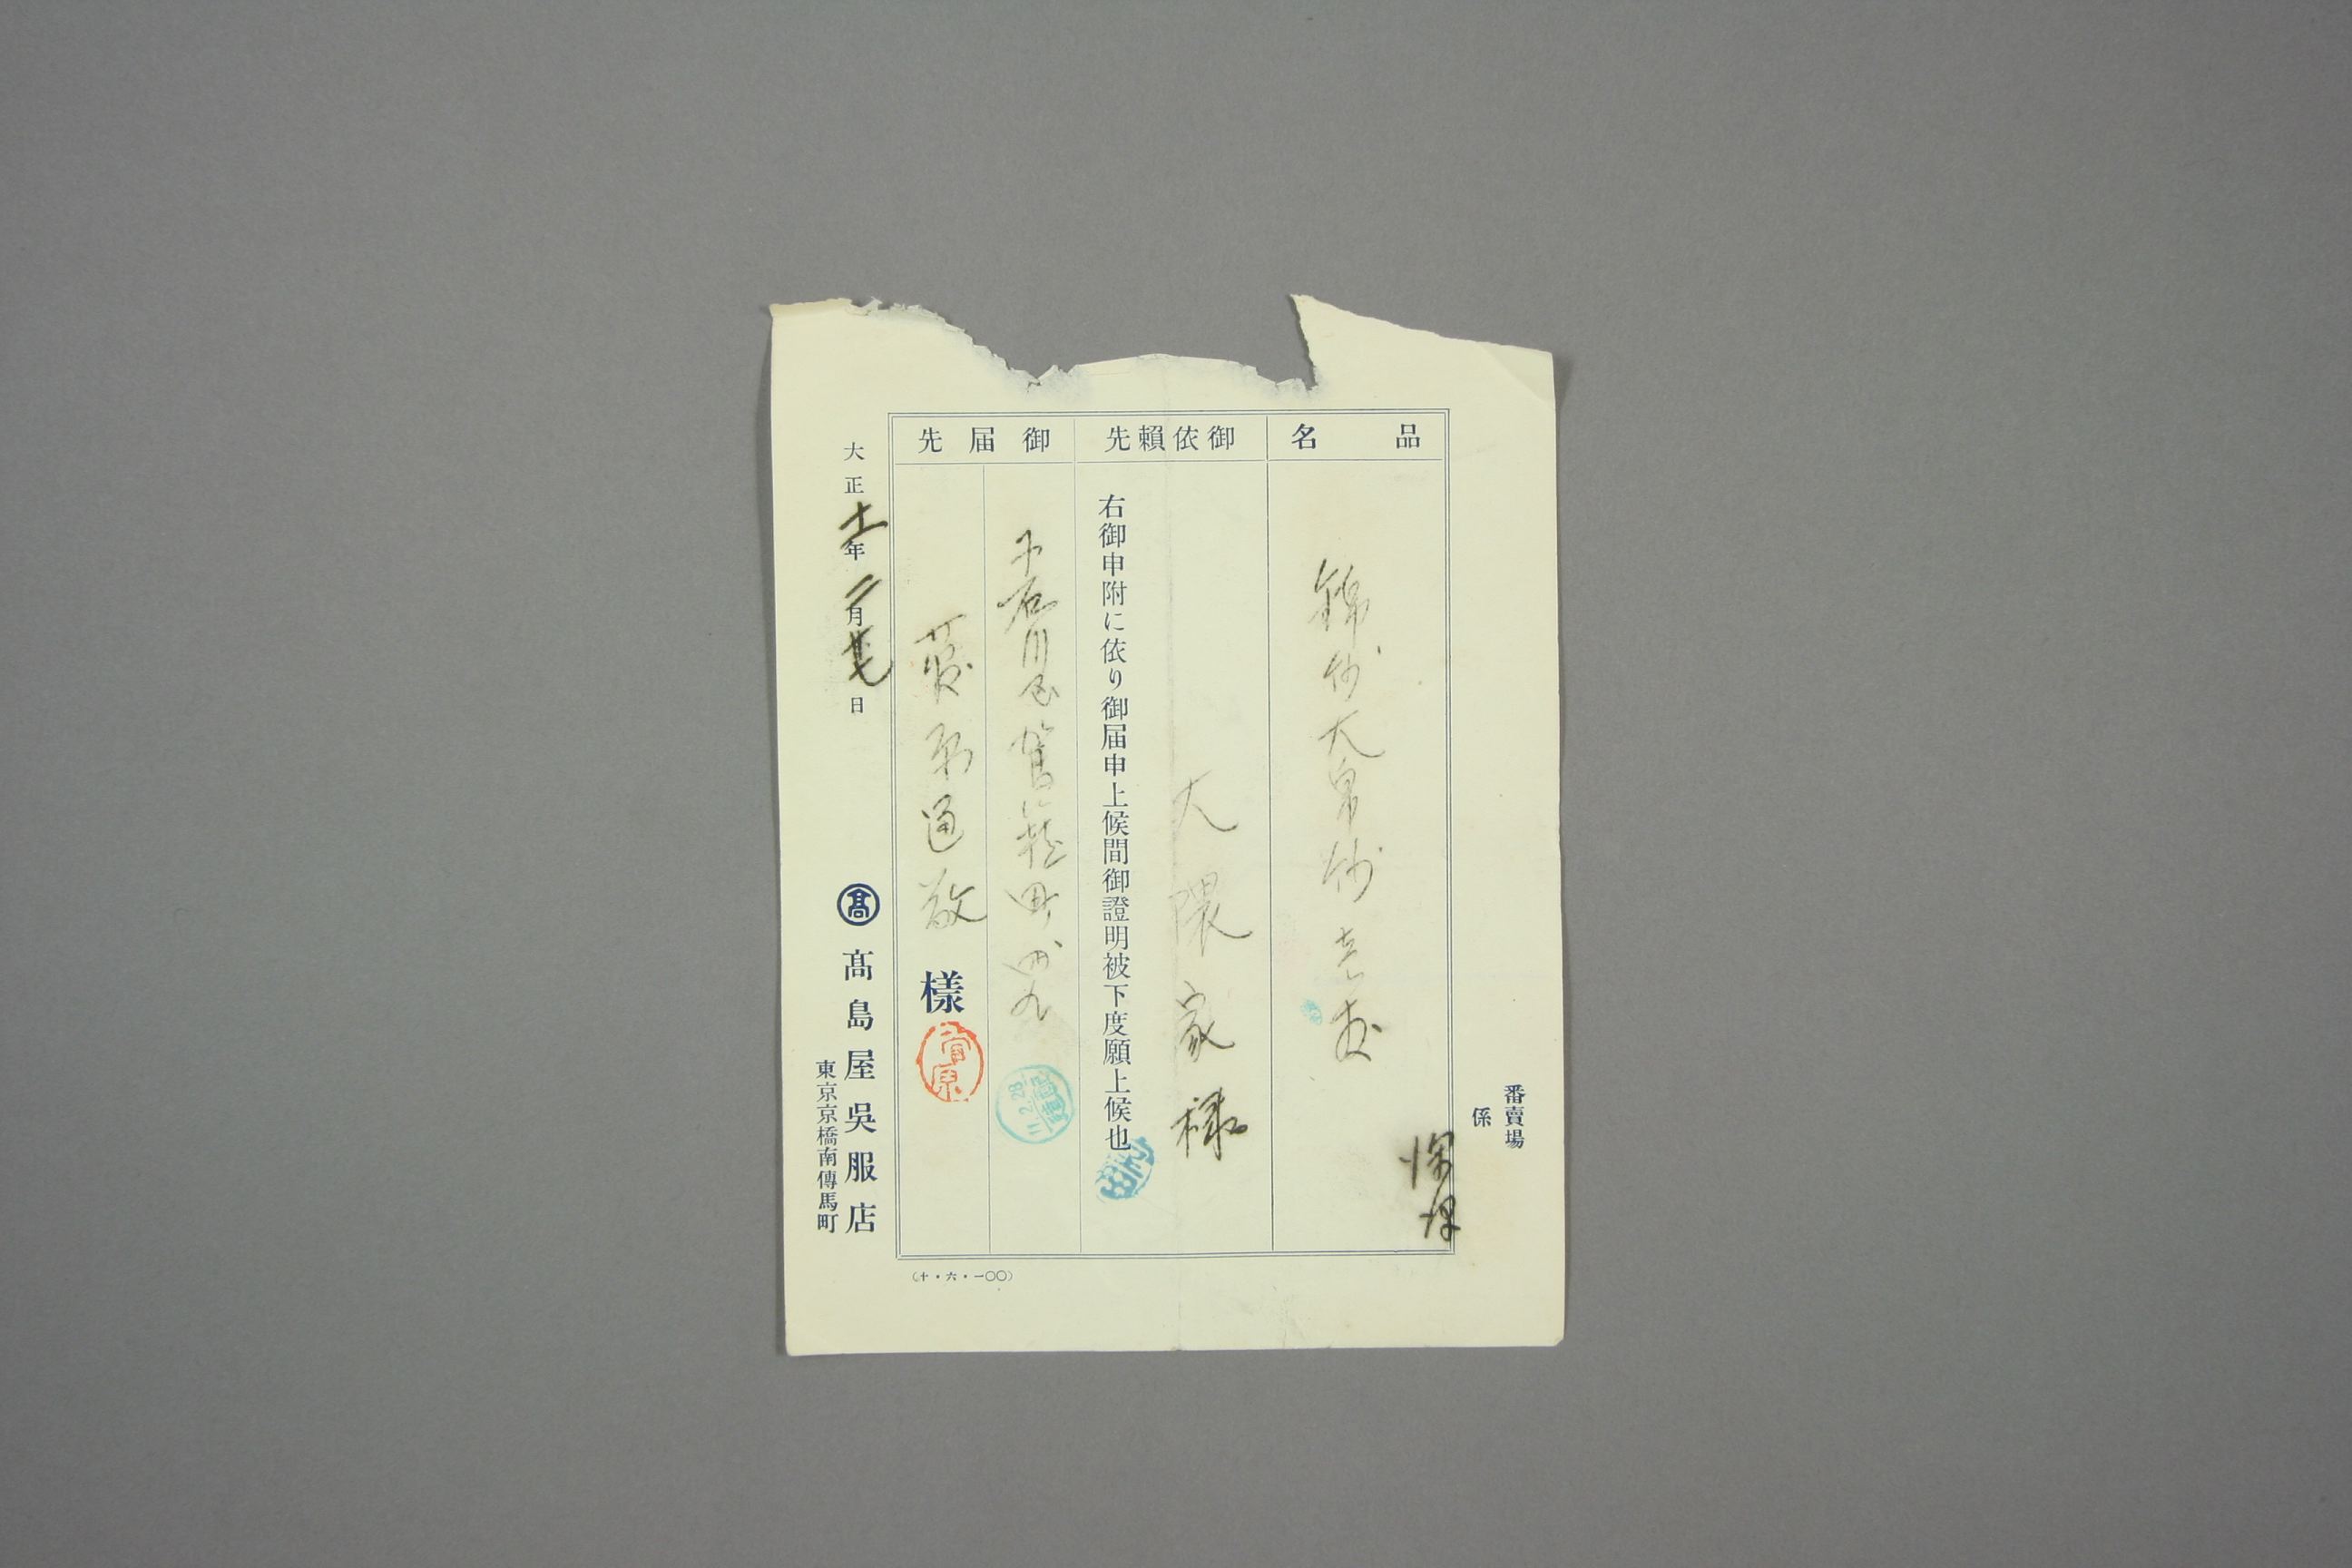 番賣場
係
品名
錦紗大帛紗 壱枚
御依賴先
大隈家様
右御申附に依り御届申上候間御證明被下度願上候也
御届先
小石川区舊籠町四九
藤原通敬
様
大正十一年二月廿七日
髙
髙島屋吳服店
東京京橋南傳馬町
(十・六・一〇〇)
11.2.28